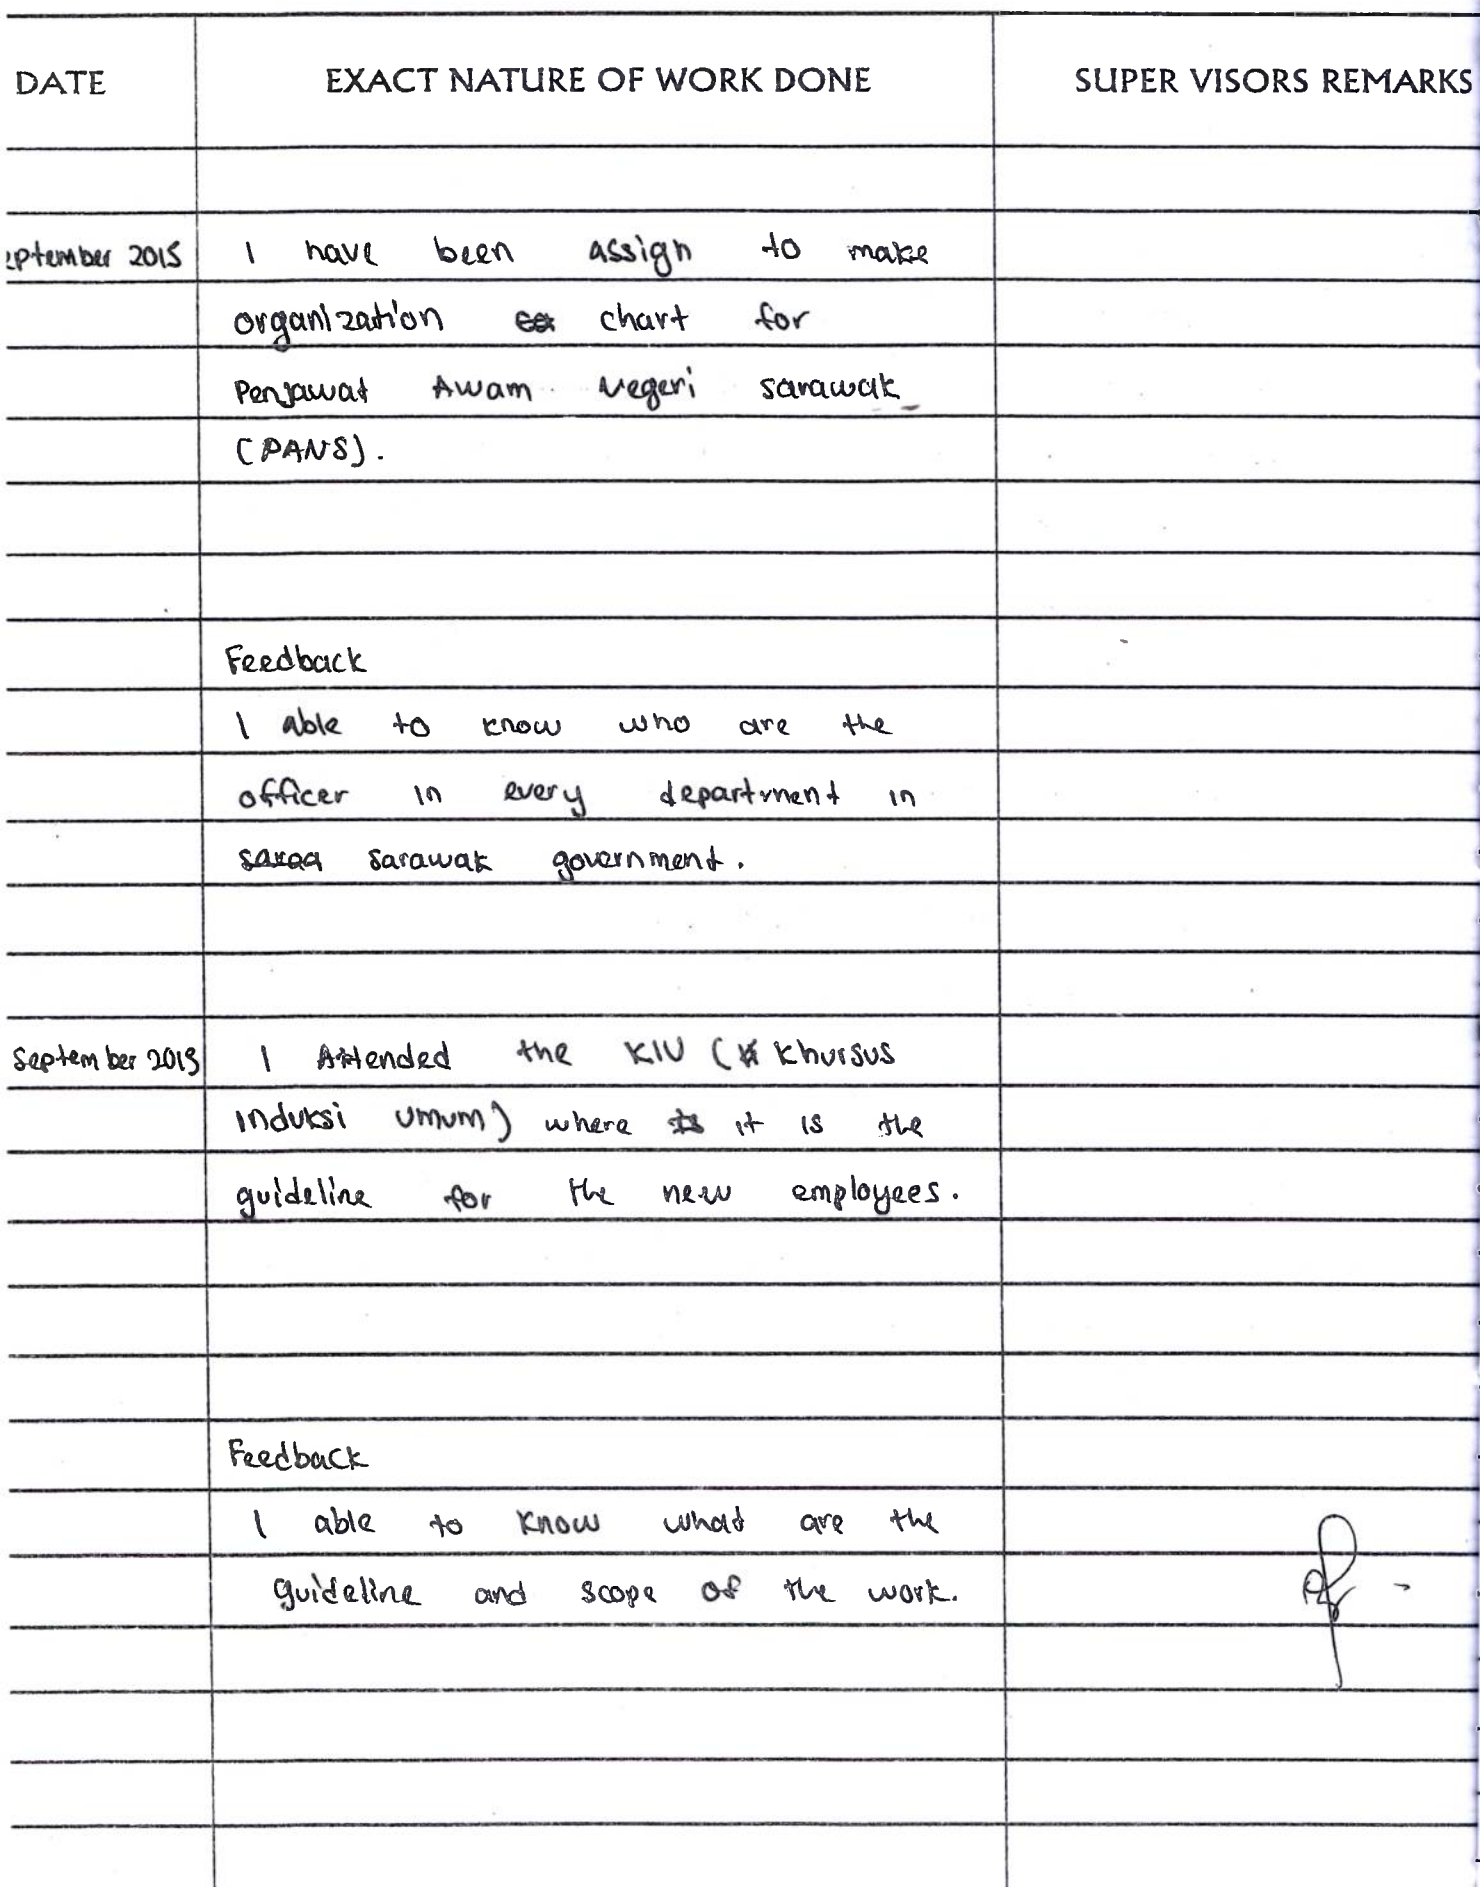 DATE EXACT NATURE OF WORK DONE SUPER VISORS REMARKS
eptember 2015 I have been assign to make
organization chart for
Penjawat Awam Negeri Sarawak
(PANS).
Feedback
I able to know who are the
officer in every department in
Sarawak government.
September 2015 I Attended the KIU (Khursus
Induksi Umum) where it is the
guideline for the new employees.
Feedback
I able to know what are the
guideline and scope of the work.